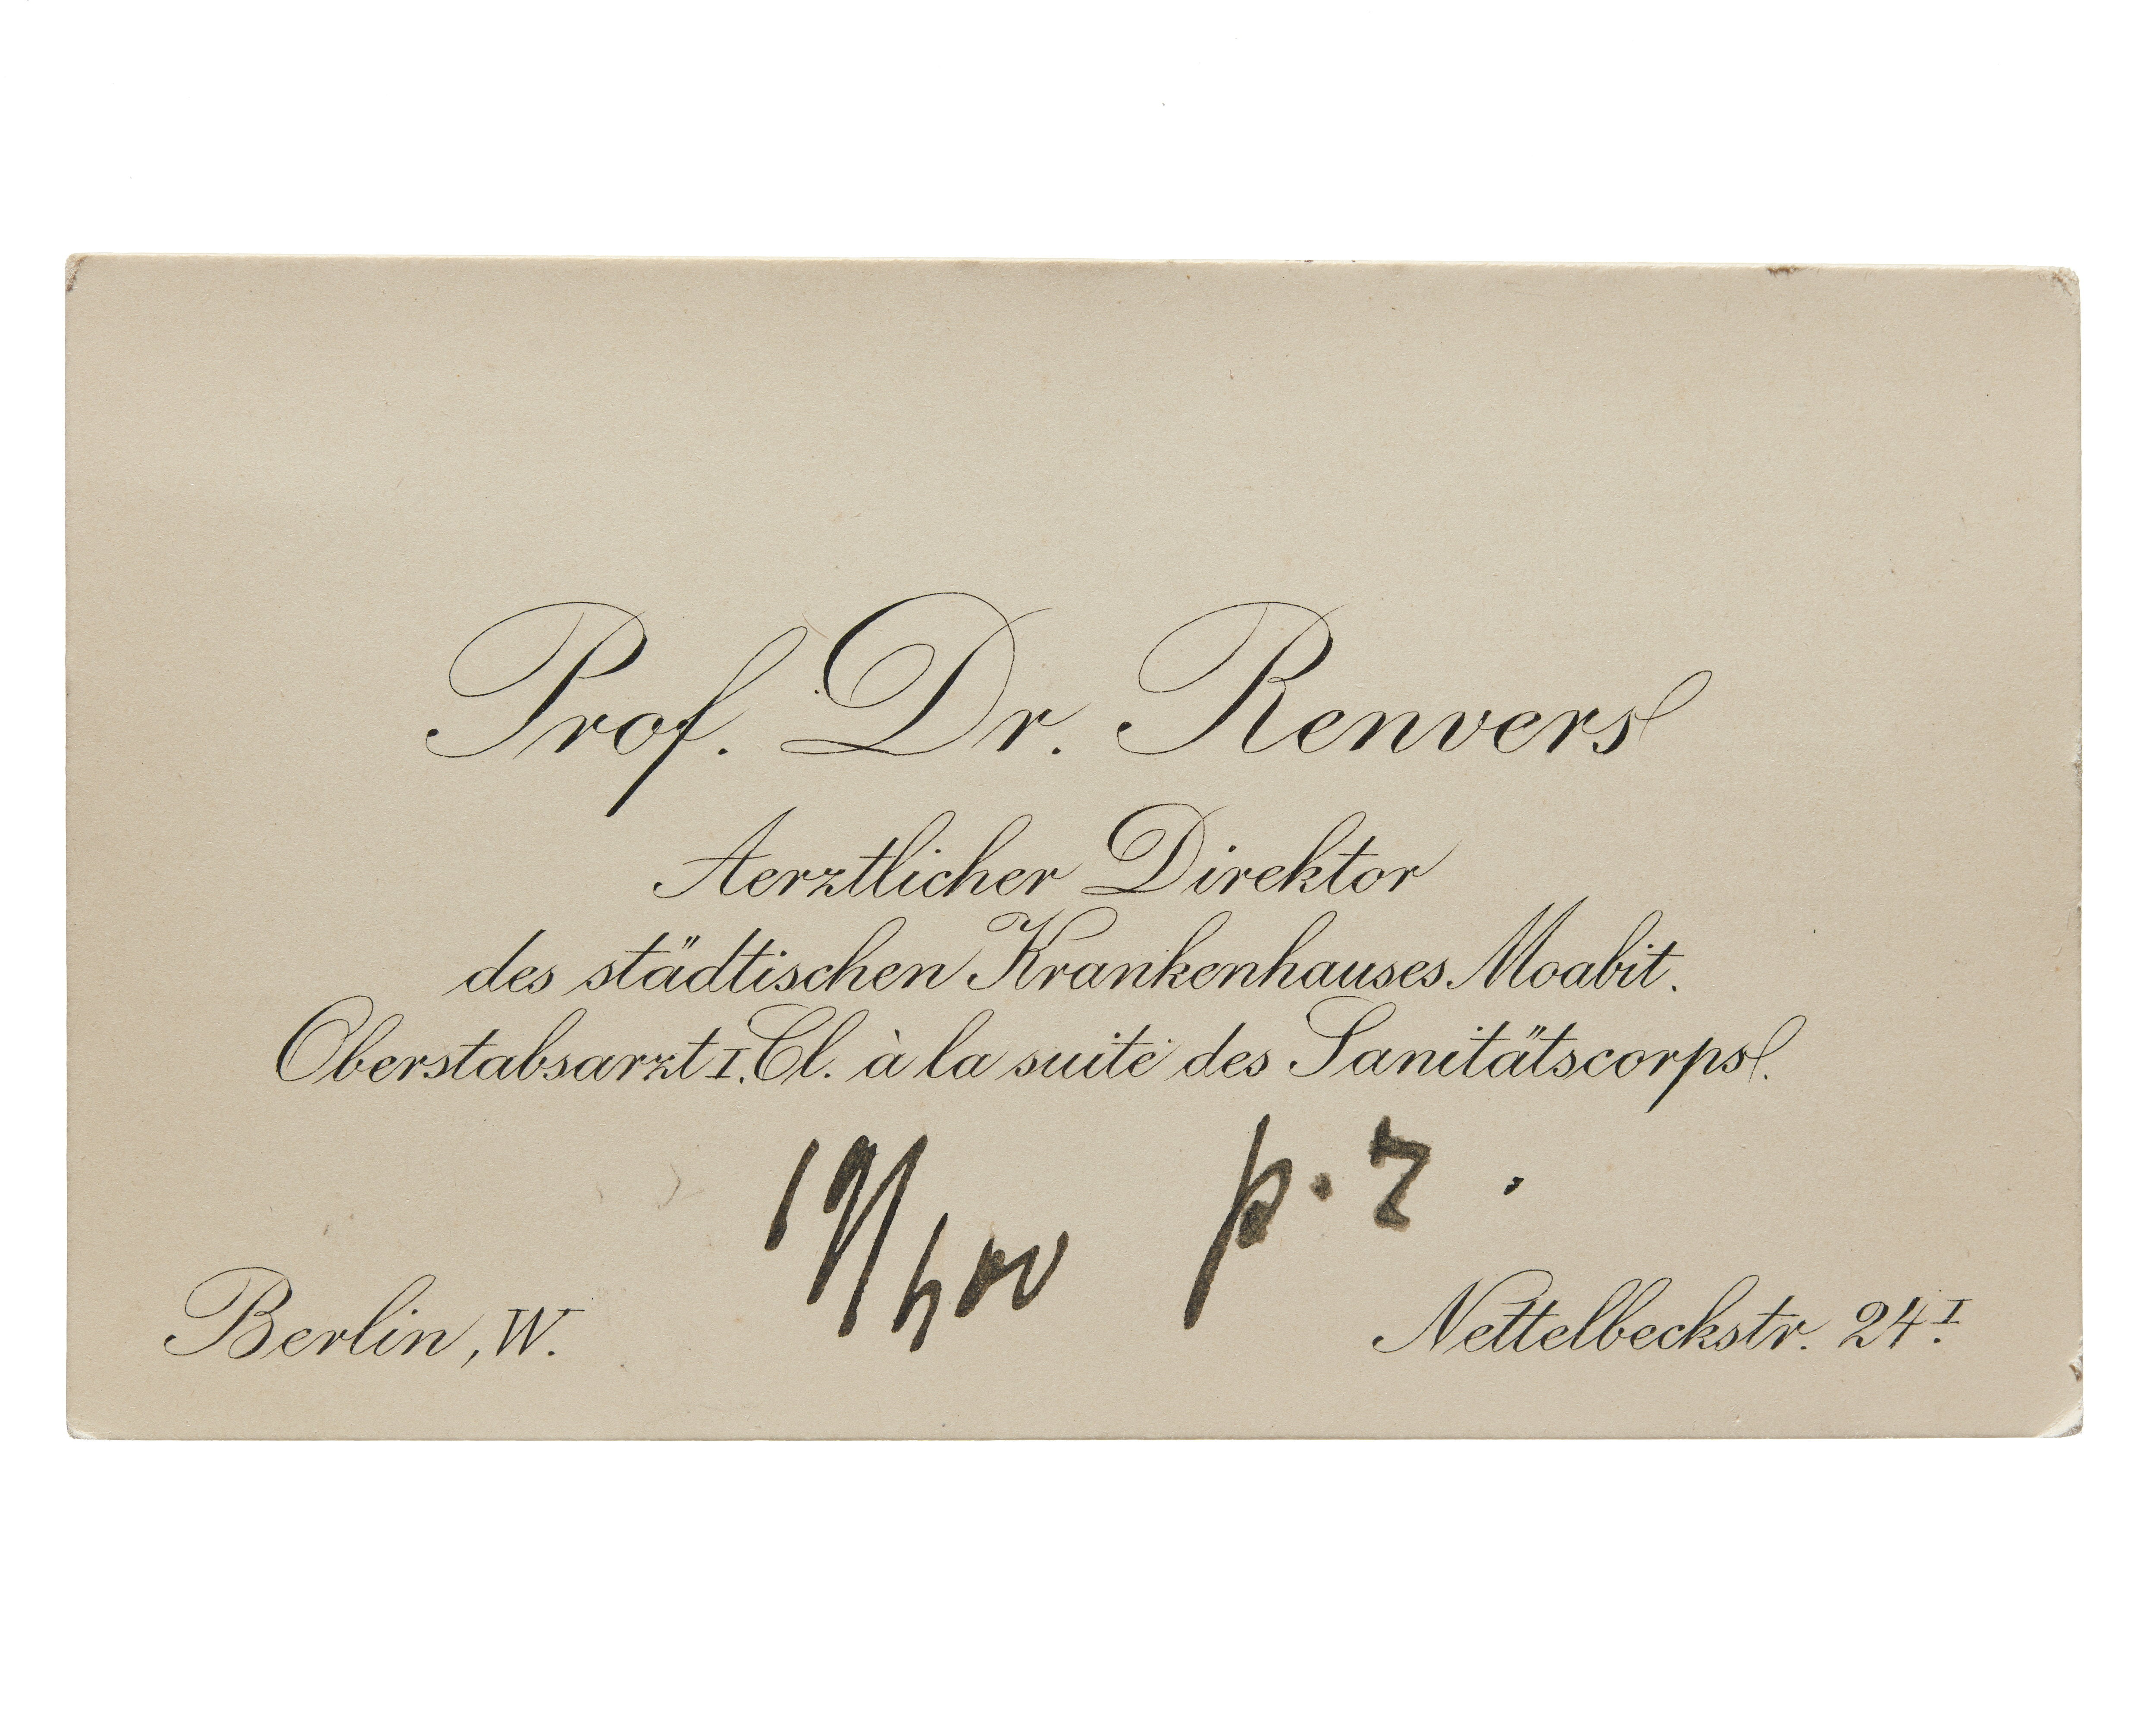 Prof. Dr. Renvers
Aerztlicher Direktor
des städtischen Krankenhauses Moabit.
Oberstabsarzt I. Cl. à la suite des Sanitätscorps.
p. r.
Berlin, W.
Nettelbeckstr. 24 I.